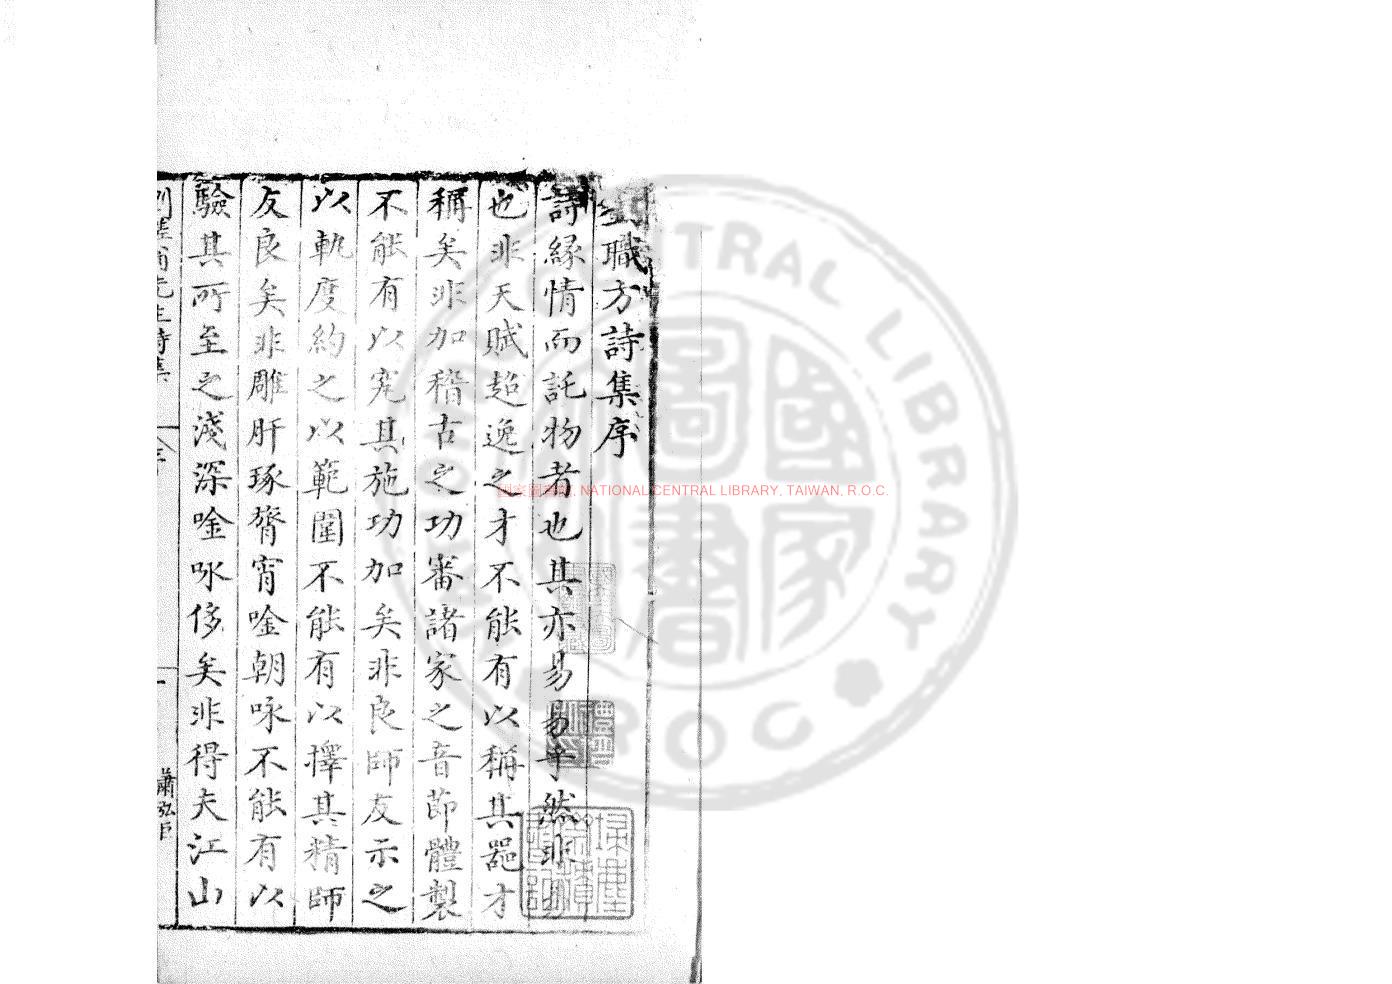 職方詩集序
詩緣情而託物者也其亦易易乎然非
也非天賦超逸之才不能有以稱其器才
稱矣非加稽古之功審諸家之音節體製
不能有以究其施功加矣非良師友示之
以軌度約之以範圍不能有以擇其精師
友良矣非雕肝琢膂宵唫朝咏不能有以
驗其所至之淺深唫咏侈矣非得夫江山
先生詩集
序
一
蕭弘臣
國家圖書館, NATIONAL CENTRAL LIBRARY, TAIWAN, R.O.C.
CENTRAL LIBRARY
R.O.C
國家圖書